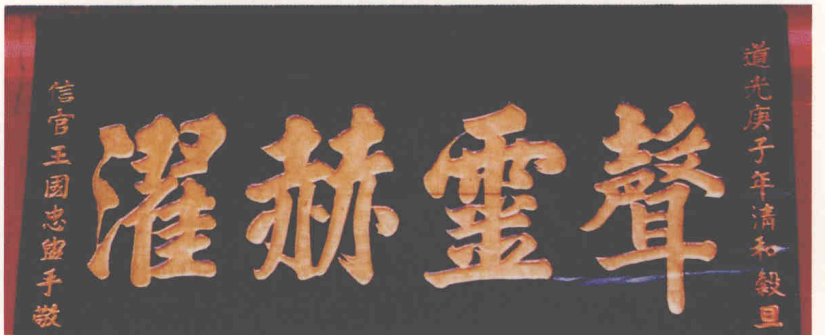 道光庚子年清和穀旦
聲靈赫濯
信官王國忠盥手敬